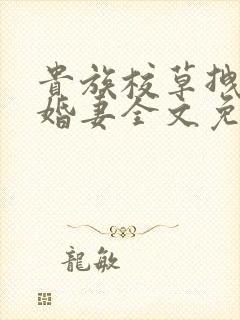 貴族校草拽
婚妻全文免
龍敏